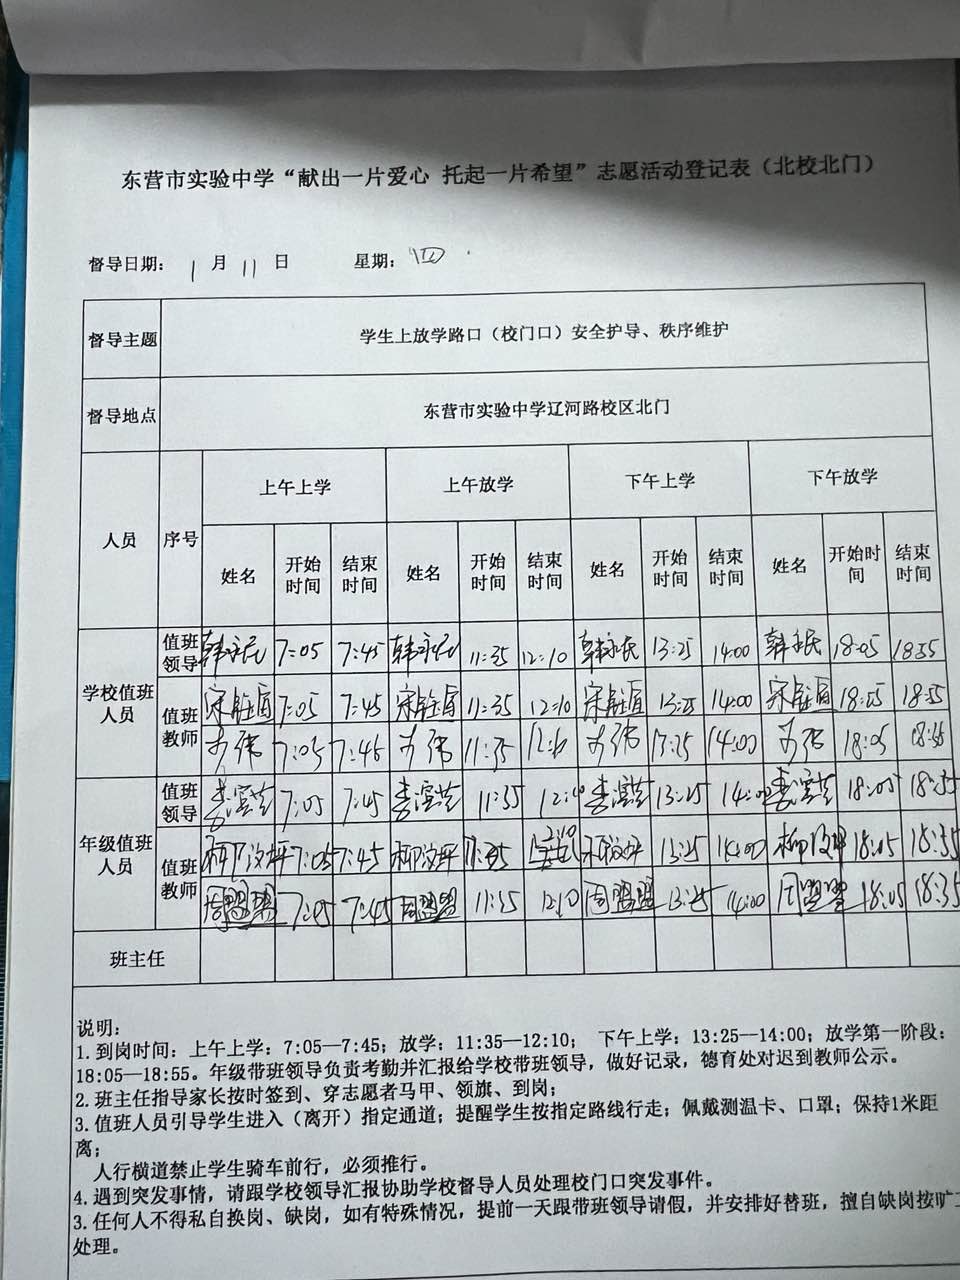 东营市实验中学“献出一片爱心 托起一片希望”志愿活动登记表（北校北门）
督导日期： 1 月 11 日 星期： 四
督导主题 学生上放学路口（校门口）安全护导、秩序维护
督导地点 东营市实验中学辽河路校区北门
人员 序号 上午上学 上午放学 下午上学 下午放学
姓名 开始时间 结束时间 姓名 开始时间 结束时间 姓名 开始时间 结束时间 姓名 开始时间 结束时间
学校值班人员 值班领导 韩永民 7:05 7:45 韩永民 11:35 12:10 韩永民 13:25 14:00 韩永民 18:05 18:55
值班教师 7:05 7:45 11:35 12:10 13:25 14:00 18:55
7:05 7:45 11:35 14:00 18:05 18:55
年级值班人员 值班领导 7:05 7:45 11:35 13:25 18:05 18:35
值班教师 7:05 7:45 11:35 13:25 14:00 18:05 18:35
周盟盟 7:05 7:45 周盟盟 11:35 12:10 周盟盟 13:25 14:00 周盟盟 18:05 18:35
班主任
说明：
1. 到岗时间：上午上学：7:05—7:45；放学：11:35—12:10； 下午上学：13:25—14:00；放学第一阶段：
18:05—18:55。年级带班领导负责考勤并汇报给学校带班领导，做好记录，德育处对迟到教师公示。
2. 班主任指导家长按时签到、穿志愿者马甲、领旗、到岗；
3. 值班人员引导学生进入（离开）指定通道；提醒学生按指定路线行走；佩戴测温卡、口罩；保持1米距
离；
人行横道禁止学生骑车前行，必须推行。
4. 遇到突发事情，请跟学校领导汇报协助学校督导人员处理校门口突发事件。
3. 任何人不得私自换岗、缺岗，如有特殊情况，提前一天跟带班领导请假，并安排好替班，擅自缺岗按旷
处理。